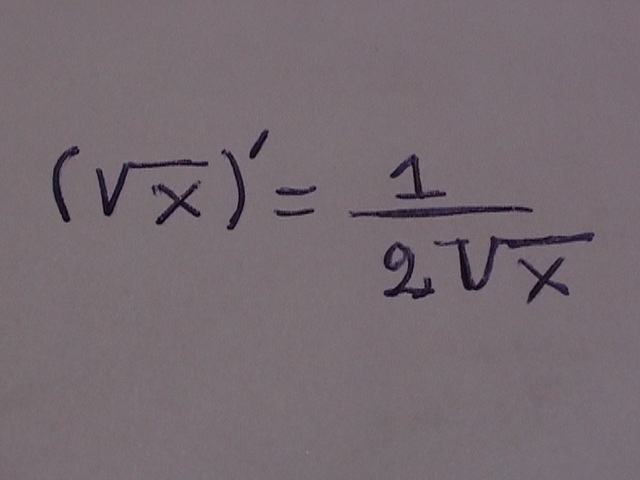 (√x)' = 1/(2√x)